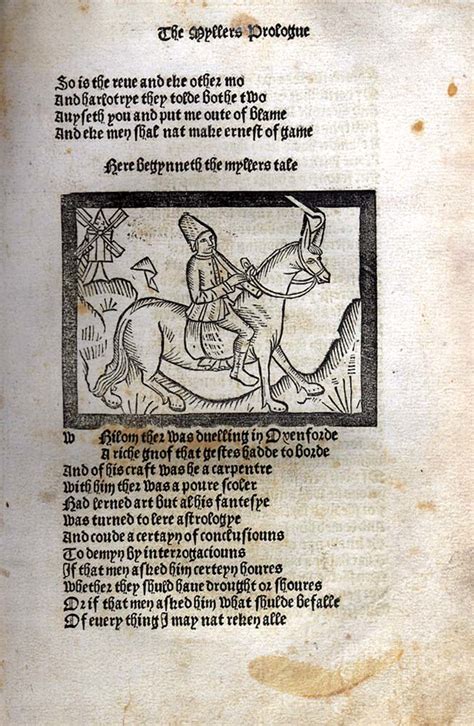 The Myllers Prologue
So is the reue and eke other mo
And harlotrye they tolde bothe two
Auyseth you and put me oute of blame
And eke men shal nat make ernest of game
Here begynneth the myllers tale
w Hilom ther was duelling in Oxenforde
A riche gnof that gestes hadde to borde
And of his craft was he a carpentre
with him ther was a poure scoler
Had lerned art but al his fantesye
was turned to lere astrologye
And coude a certayn of conclusiouns
To demyn by interrogaciouns
If that men asked him certeyn houres
whether they shuld haue drought or shoures
Or if that men asked him what shulde befalle
Of euery thing I may nat reken alle